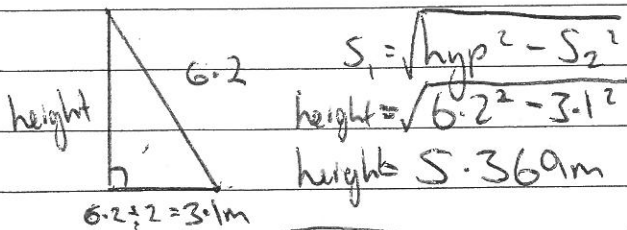 6.2
height
6.2÷2=3.1m
S₁=√hyp²-S₂²
height=√6.2²-3.1²
height= 5.369m